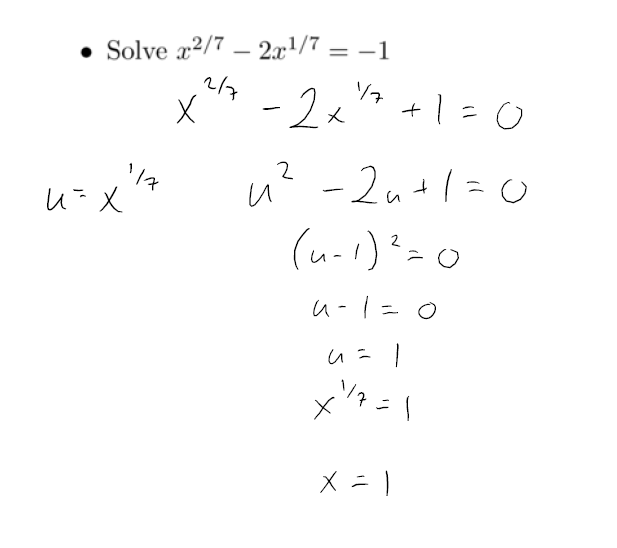 • Solve x^{2/7} − 2x^{1/7} = −1
x^{2/7} - 2x^{1/7} + 1 = 0
u = x^{1/7} u^2 - 2u + 1 = 0
(u-1)^2 = 0
u - 1 = 0
u = 1
x^{1/7} = 1
x = 1